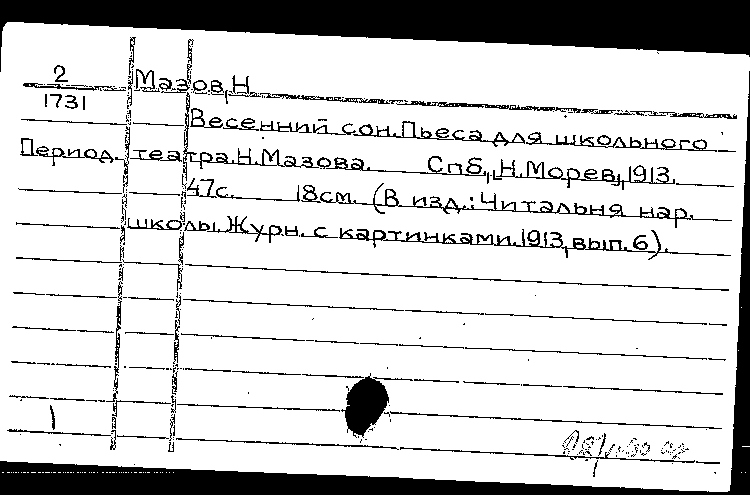 2 Мазов, Н
1731
Весенний сон. Пьеса для школьного
Период. театра. Н. Мазова. Спб., "Н. Морев", 1913.
47с. 18см. (В изд.: Читальня нар.
школы. Журн. с картинками. 1913, вып. 6).
1